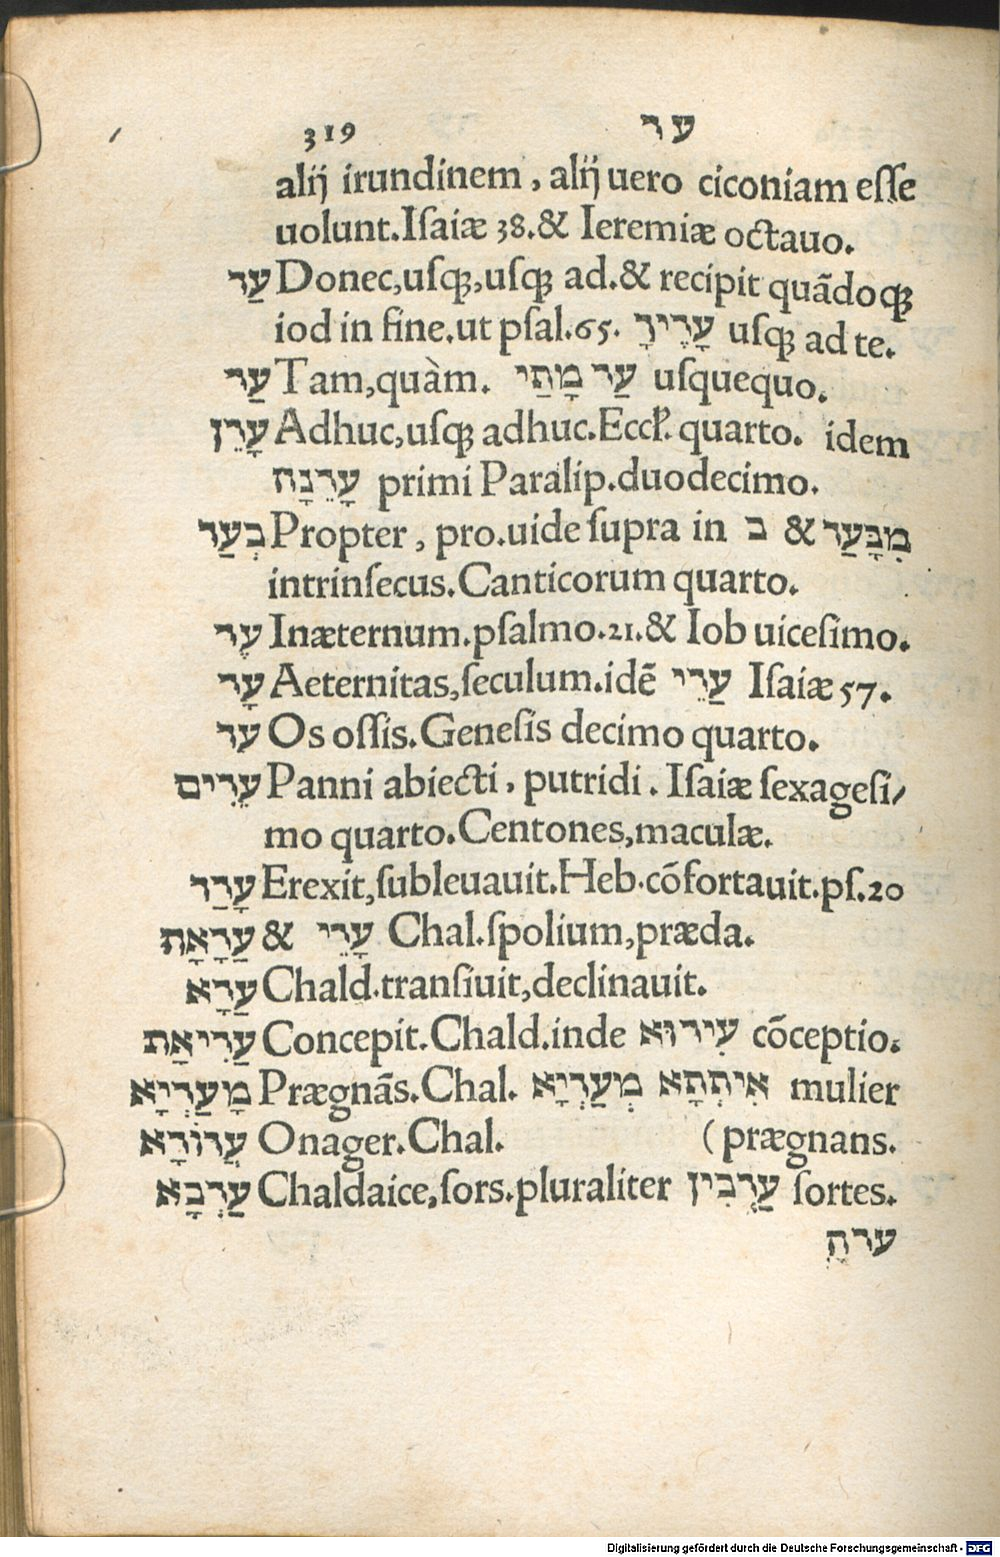 319 עד
alij irundinem , alij uero ciconiam eſſe
uolunt.Iſaiæ 38.& Ieremiæ octauo.
עַד Donec,uſqꝫ,uſqꝫ ad.& recipit quãdoqꝫ
iod in fine.ut pſal.65. עָדֶיךָ uſqꝫ ad te.
עַד Tam,quàm. עַד מָתַי uſquequo.
עָדֵן Adhuc,uſqꝫ adhuc.Eccł. quarto. idem
עָדֵנָה primi Paralip.duodecimo.
בְעַד Propter , pro.uide ſupra in ב & מִבָּעַד
intrinſecus.Canticorum quarto.
עֶד Inæternum.pſalmo.21.& Iob uiceſimo.
עָד Aeternitas,ſeculum.idẽ עַדֵי Iſaiæ 57.
עד Os oſſis.Geneſis decimo quarto.
עִדִים Panni abiecti . putridi . Iſaiæ ſexageſi/
mo quarto.Centones,maculæ.
עָדַד Erexit,ſubleuauit.Heb.cõfortauit.pſ.20
עַדָאָת & עָדֵי Chal.ſpolium,præda.
עַדָא Chald.tranſiuit,declinauit.
עַדִיאַת Concepit.Chald.inde עִידוּא cõceptio.
מָעַדְיָא Prægnãs.Chal. אִיתְתָא מְעַדְיָא mulier
עֲרוֹדָא Onager.Chal. (prægnans.
עַדְבָא Chaldaice,ſors.pluraliter עַדְבִין ſortes.
עדה